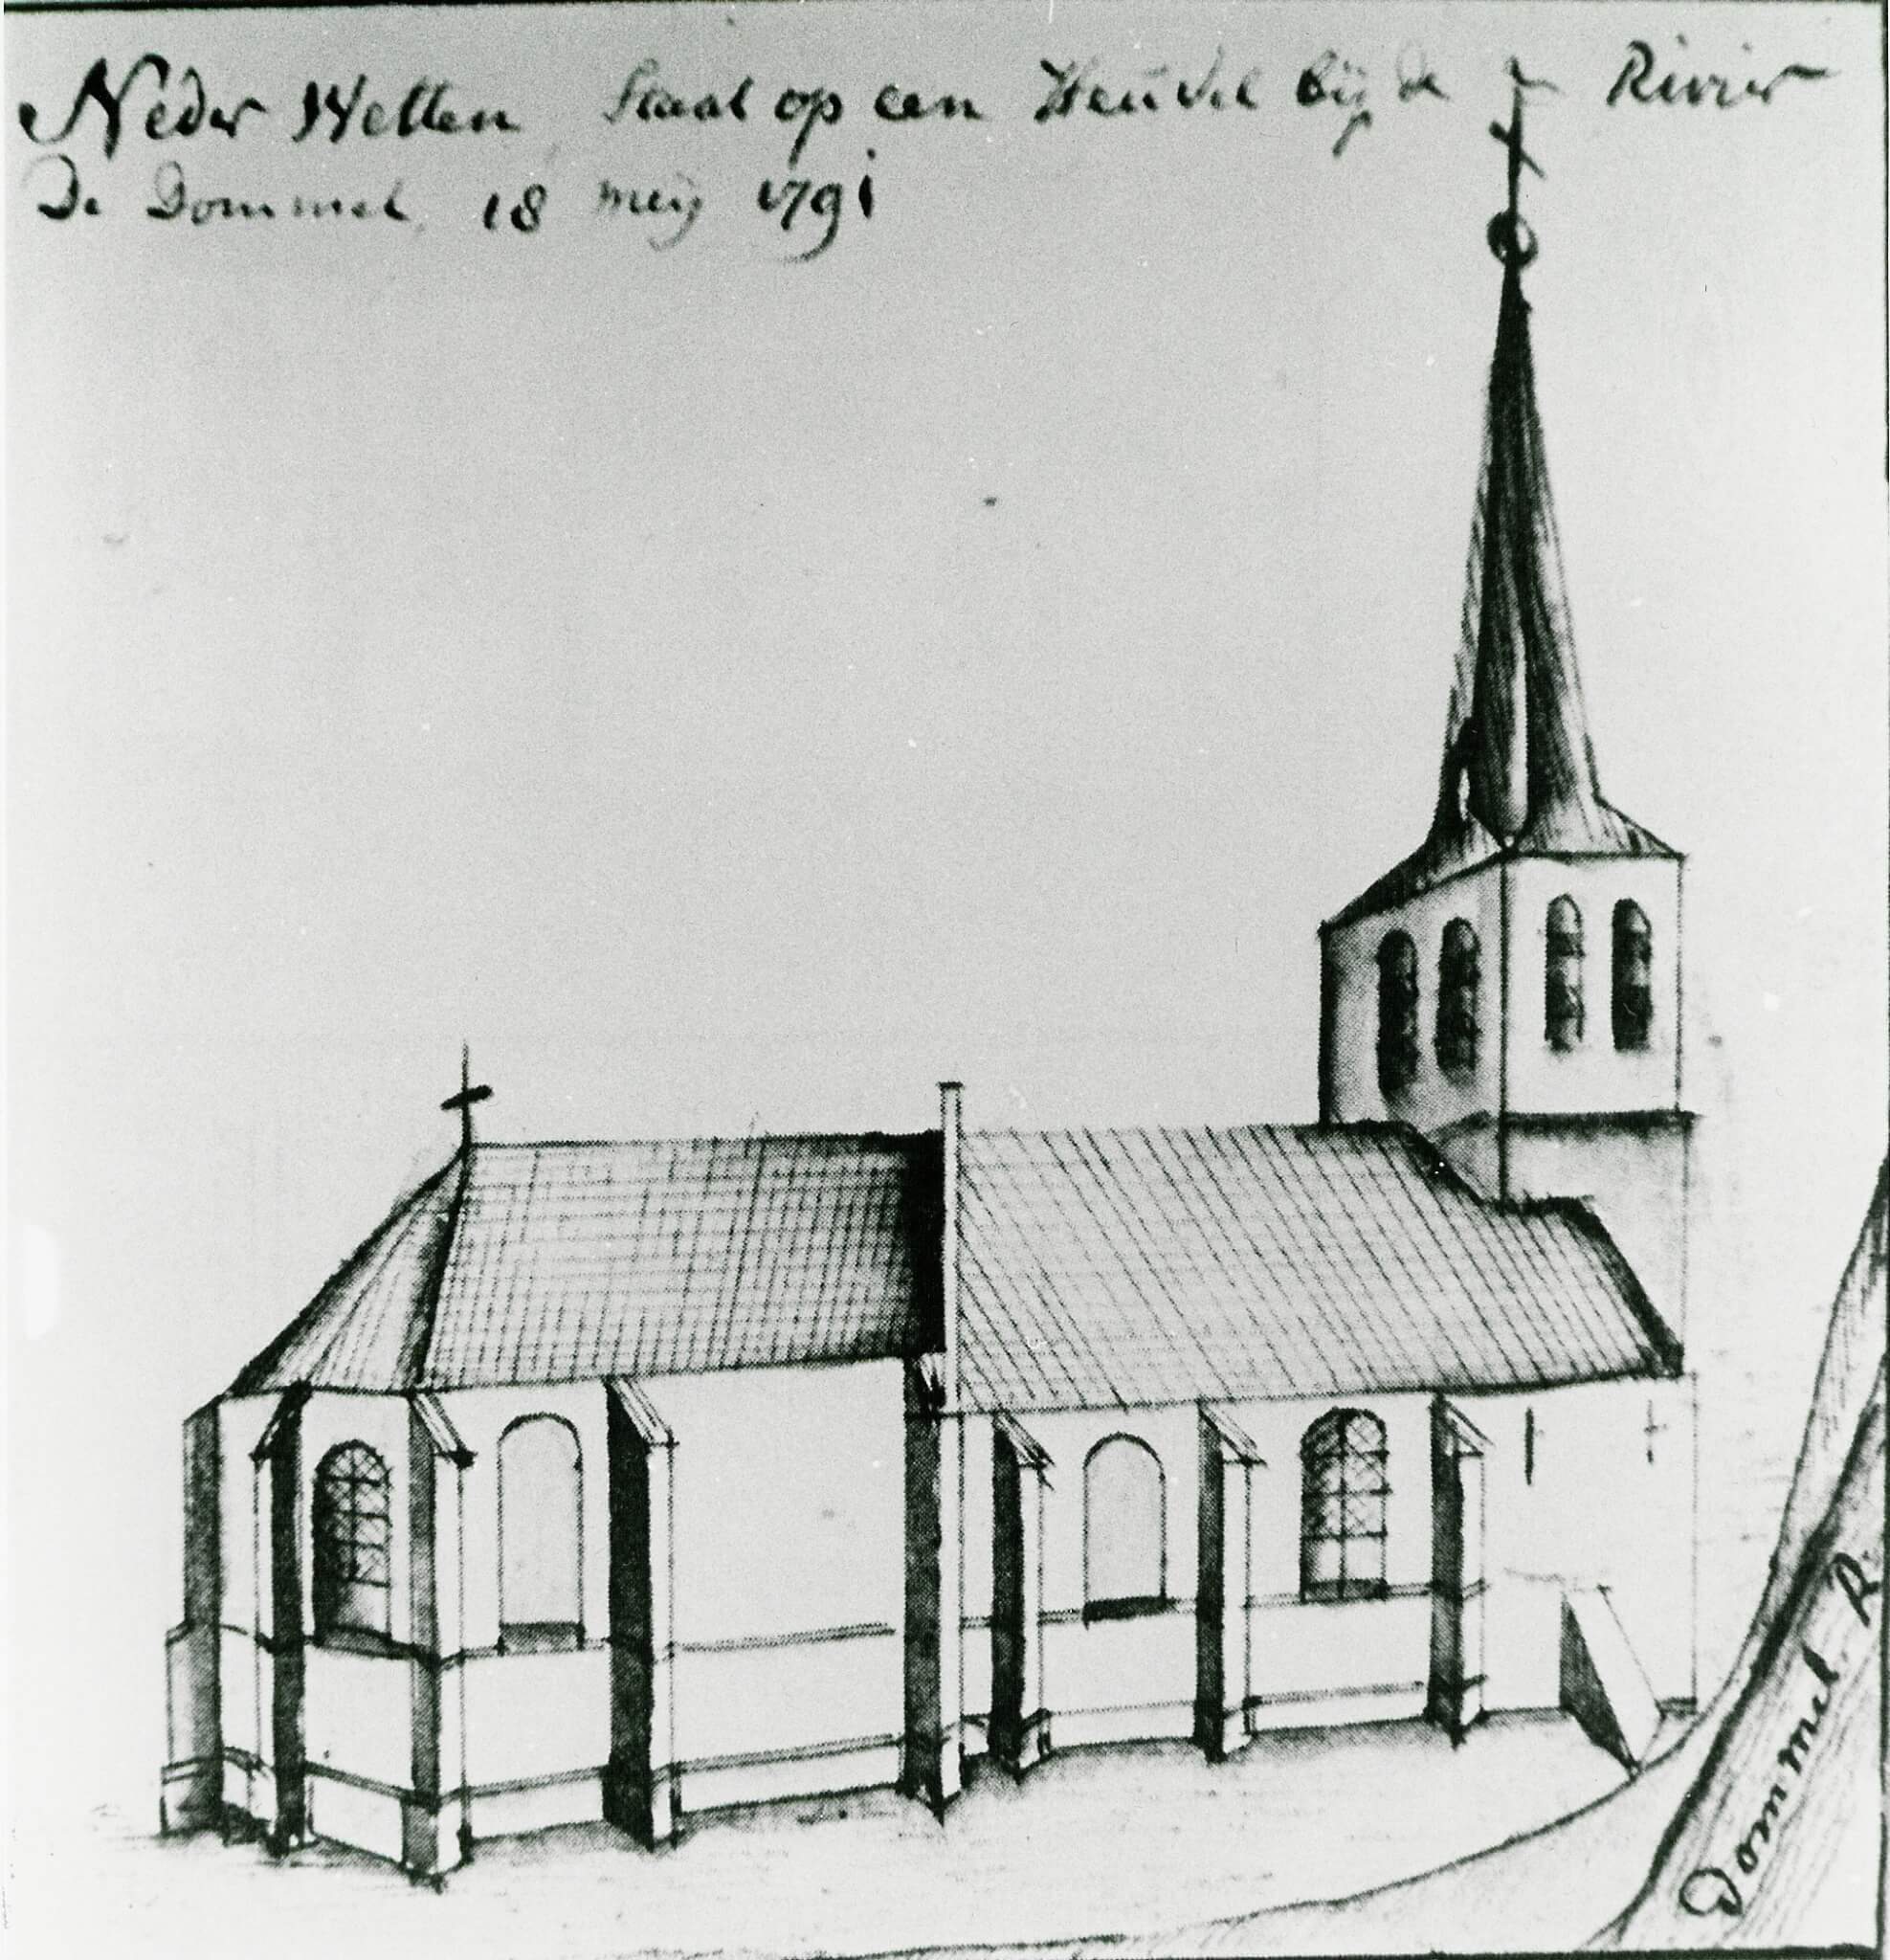 Neder Wetten Staat op een Heuvel bij de Rivier
De Dommel 18 meij 1791
Dommel R: